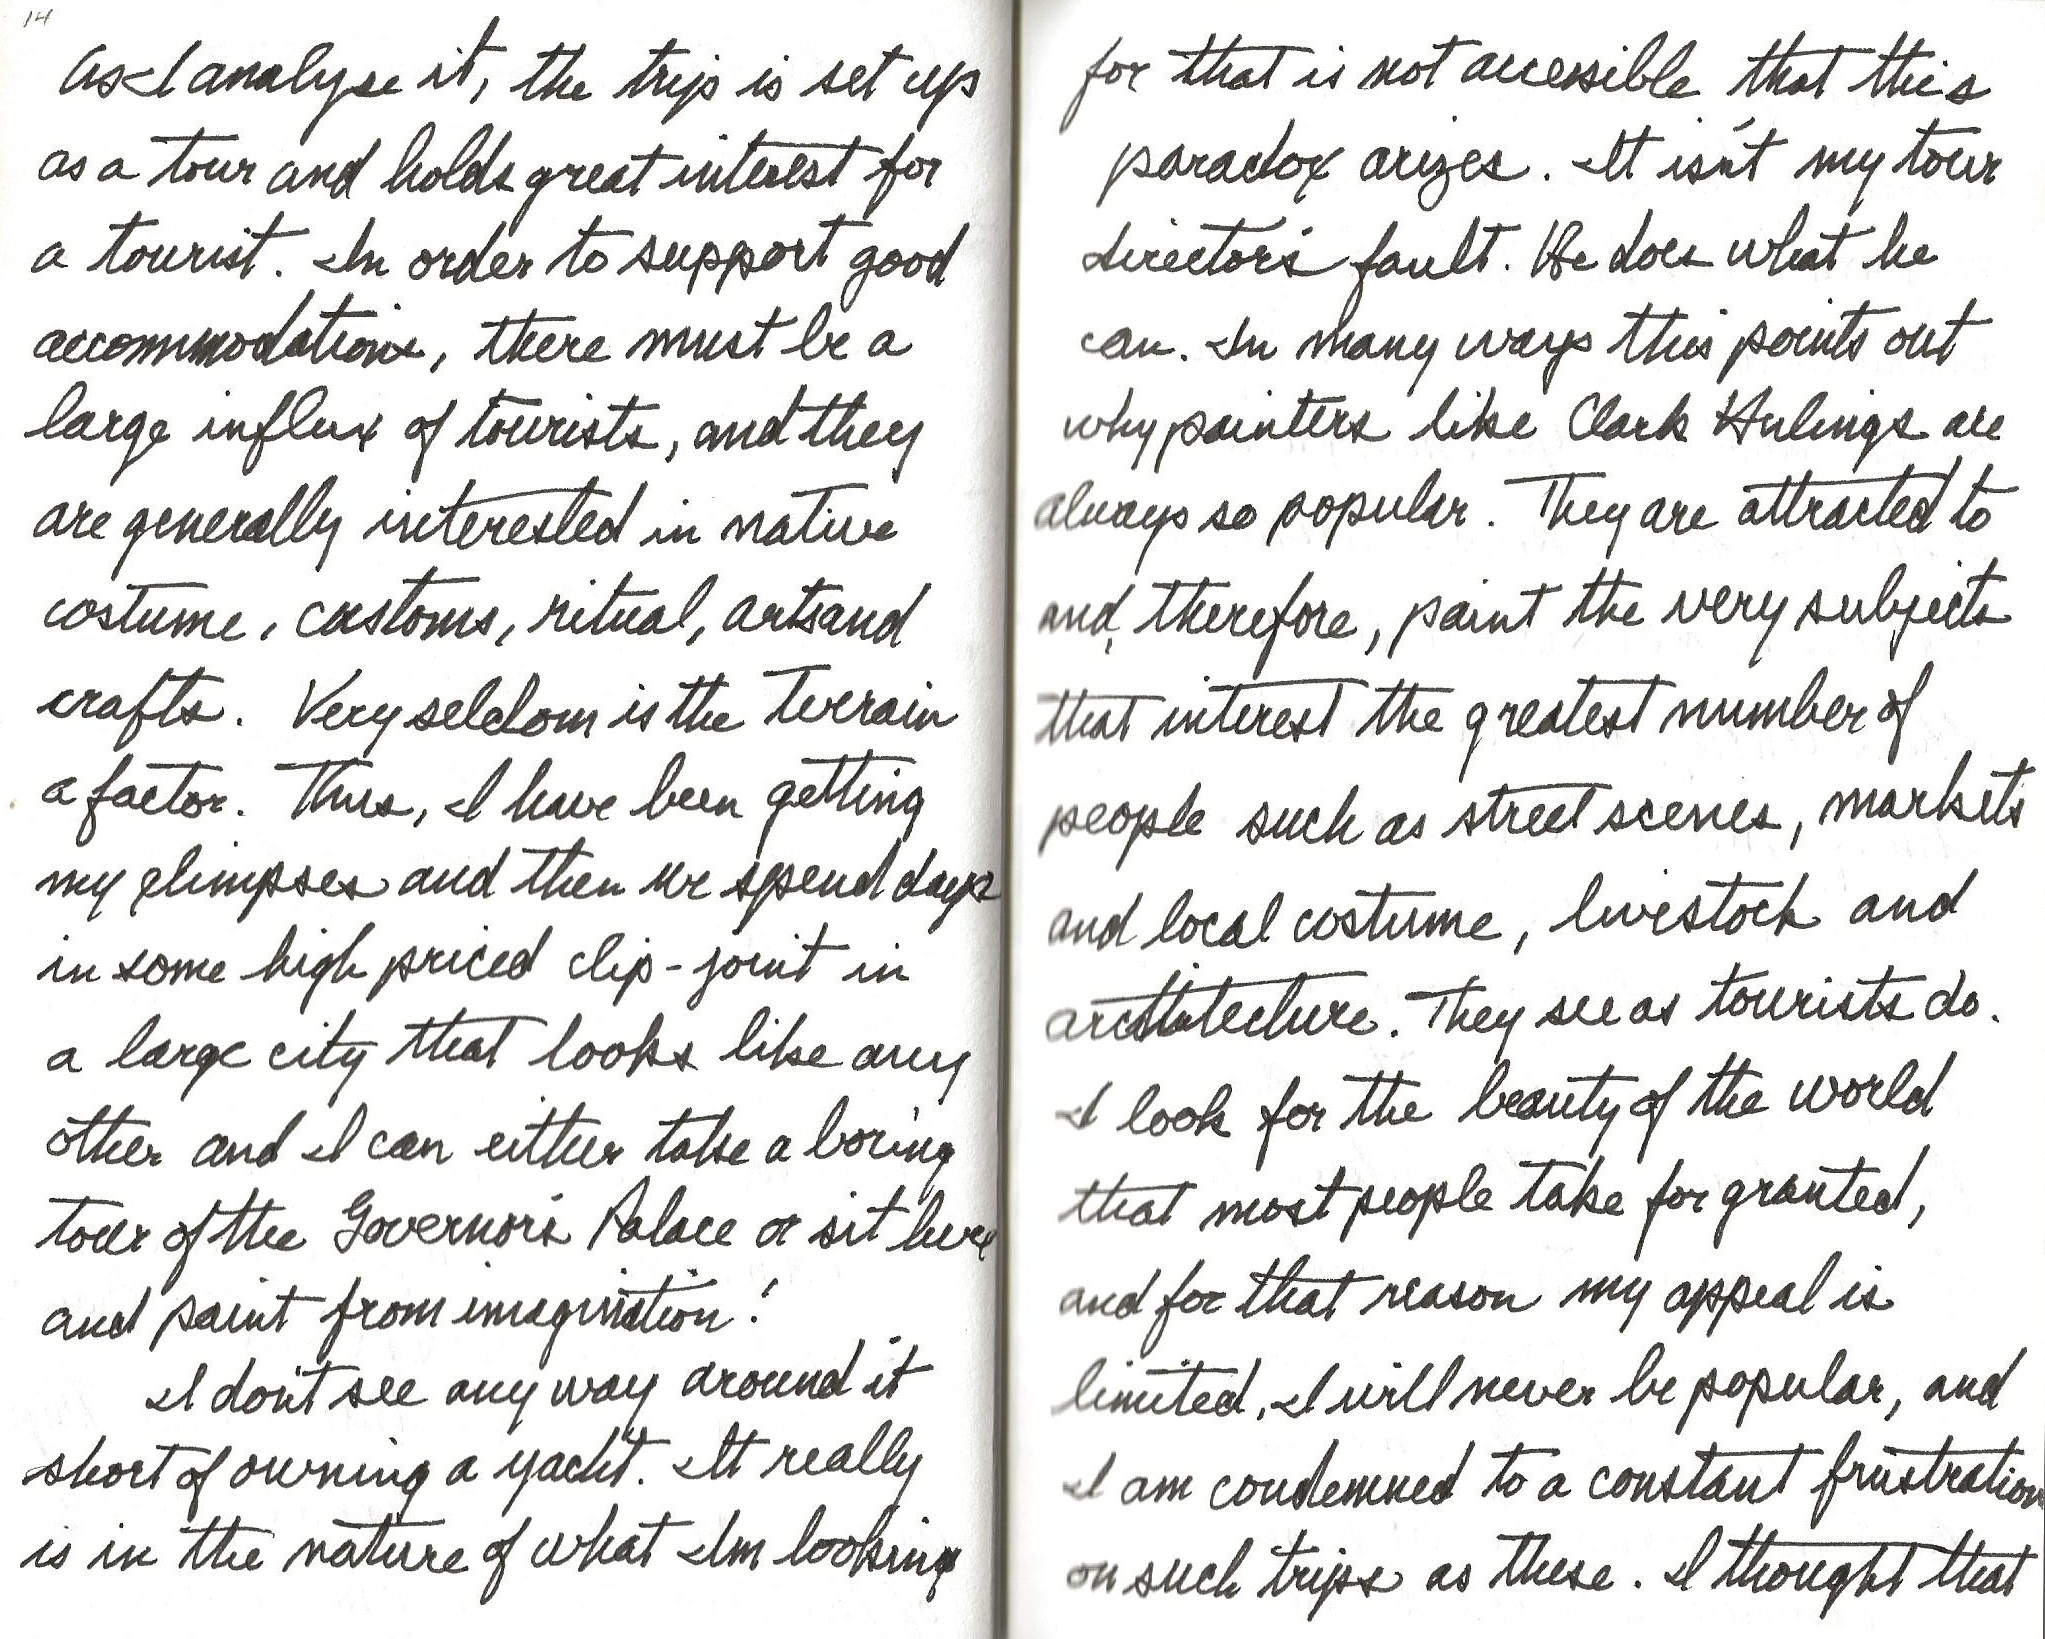 14
As I analyse it, the trip is set up
as a tour and holds great interest for
a tourist. In order to support good
accommodations, there must be a
large influx of tourists, and they
are generally interested in native
costume, customs, ritual, arts and
crafts. Very seldom is the Terrain
a factor. Thus, I have been getting
my glimpses and then we spend days
in some high priced clip-joint in
a large city that looks like any
other and I can either take a boring
tour of the Governor's Palace or sit here
and paint from imagination!
I don't see any way around it
short of owning a yacht. It really
is in the nature of what I'm looking
for that is not accessible, that this
paradox arizes. It isn't my tour
director's fault. He does what he
can. In many ways this points out
why painters like Clark Hulings are
always so popular. They are attracted to
and, therefore, paint the very subjects
that interest the greatest number of
people such as street scenes, markets
and local costume, livestock and
architecture. They see as tourists do.
I look for the beauty of the world
that most people take for granted,
and for that reason my appeal is
limited. I will never be popular, and
I am condemned to a constant frustration
on such trips as these. I thought that